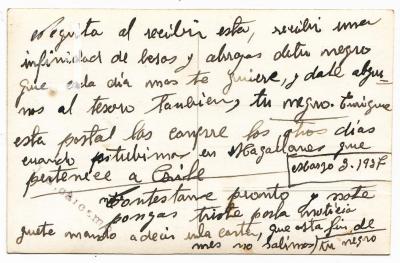 Negrita al recibir esta, recibir una
infinidad de besos y abrazos de tu negro
que cada día mas te quiere, y dale algu-
nos al tesoro tambien, tu negro. Enrique
esta postal las compre los otros días
cuando estubimos en Magallanes que
pertenece a Chile
marzo 3. 1937
Contestame pronto y no te
pongas triste por la noticia
que te mando a decir en la carta, que esta fin de
mes no salimos, tu negro